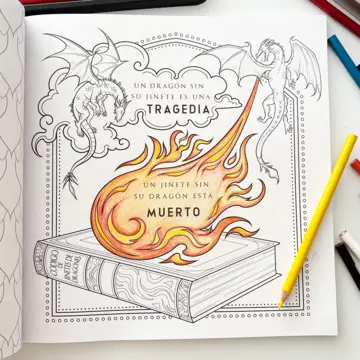 UN DRAGÓN SIN
SU JINETE ES UNA
TRAGEDIA
UN JINETE SIN
SU DRAGÓN ESTÁ
MUERTO
CÓDIGO
DE
JINETES DE
DRAGONES